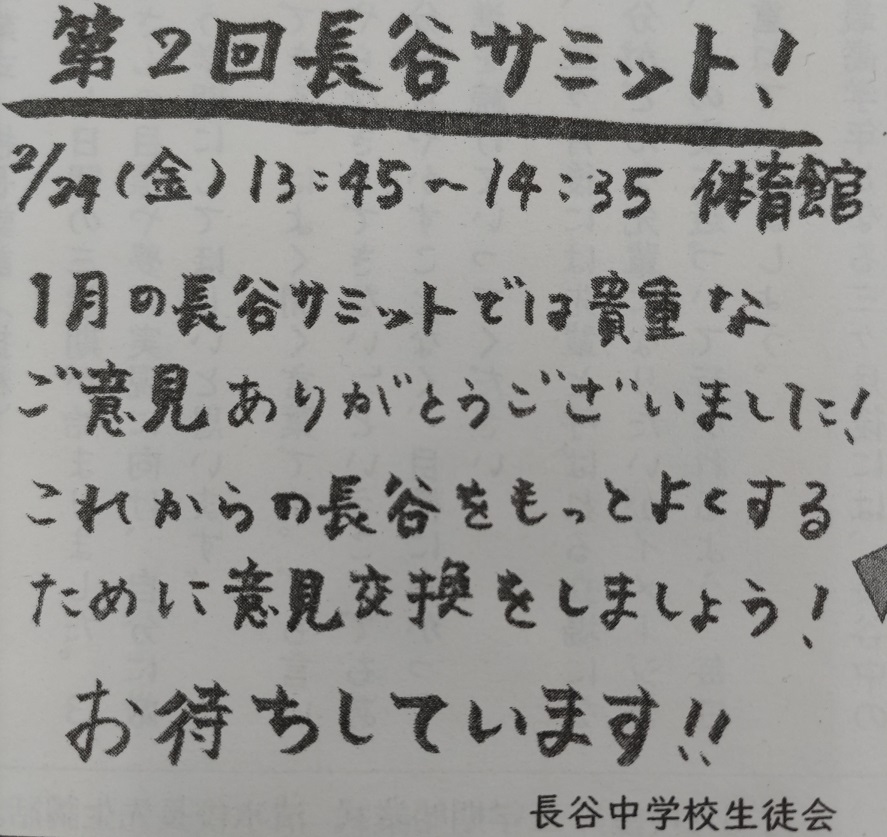 第2回長谷サミット!
2/24(金)13:45~14:35 体育館
1月の長谷サミットでは貴重な
ご意見ありがとうございました!
これからの長谷をもっとよくする
ために意見交換をしましょう!
お待ちしています!!
長谷中学校生徒会